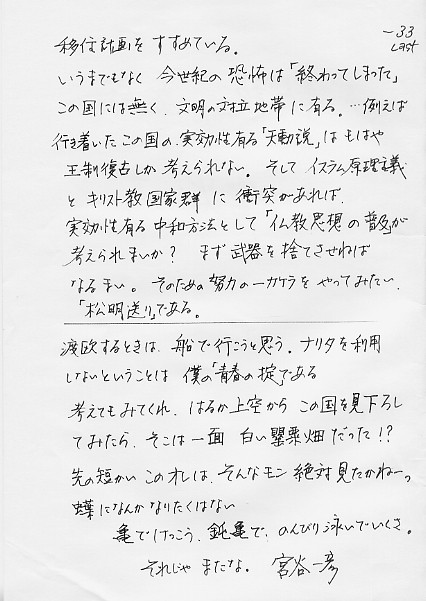 -33
Last
移住計画をすすめている。
いうまでもなく 今世紀の恐怖は「終わってしまった」
この国には無く、文明の対立地帯に有る。…例えば
行き着いたこの国の、実効性有る「天動説」はもはや
王制復古しか考えられない。そして イスラム原理主義
と キリスト教国家群 に 衝突があれば、
実効性有る中和方法として「仏教思想の普及」が
考えられまいか？ まず武器を捨てさせねば
なるまい。そのための努力の一カケラをやってみたい、
「松明送り」である。
渡欧するときは、船で行こうと思う。ナリタを利用
しないということは 僕の「青春の掟」である
考えてもみてくれ、はるか上空から この国を見下ろし
てみたら、そこは一面 白い罌粟畑だった!?
先の短かいこのオレは、そんなモン 絶対見たかねーっ
蝶になんかなりたくはない
亀でけっこう、鈍亀で、のんびり泳いでいくさ。
それじゃ またな。 宮谷一彦